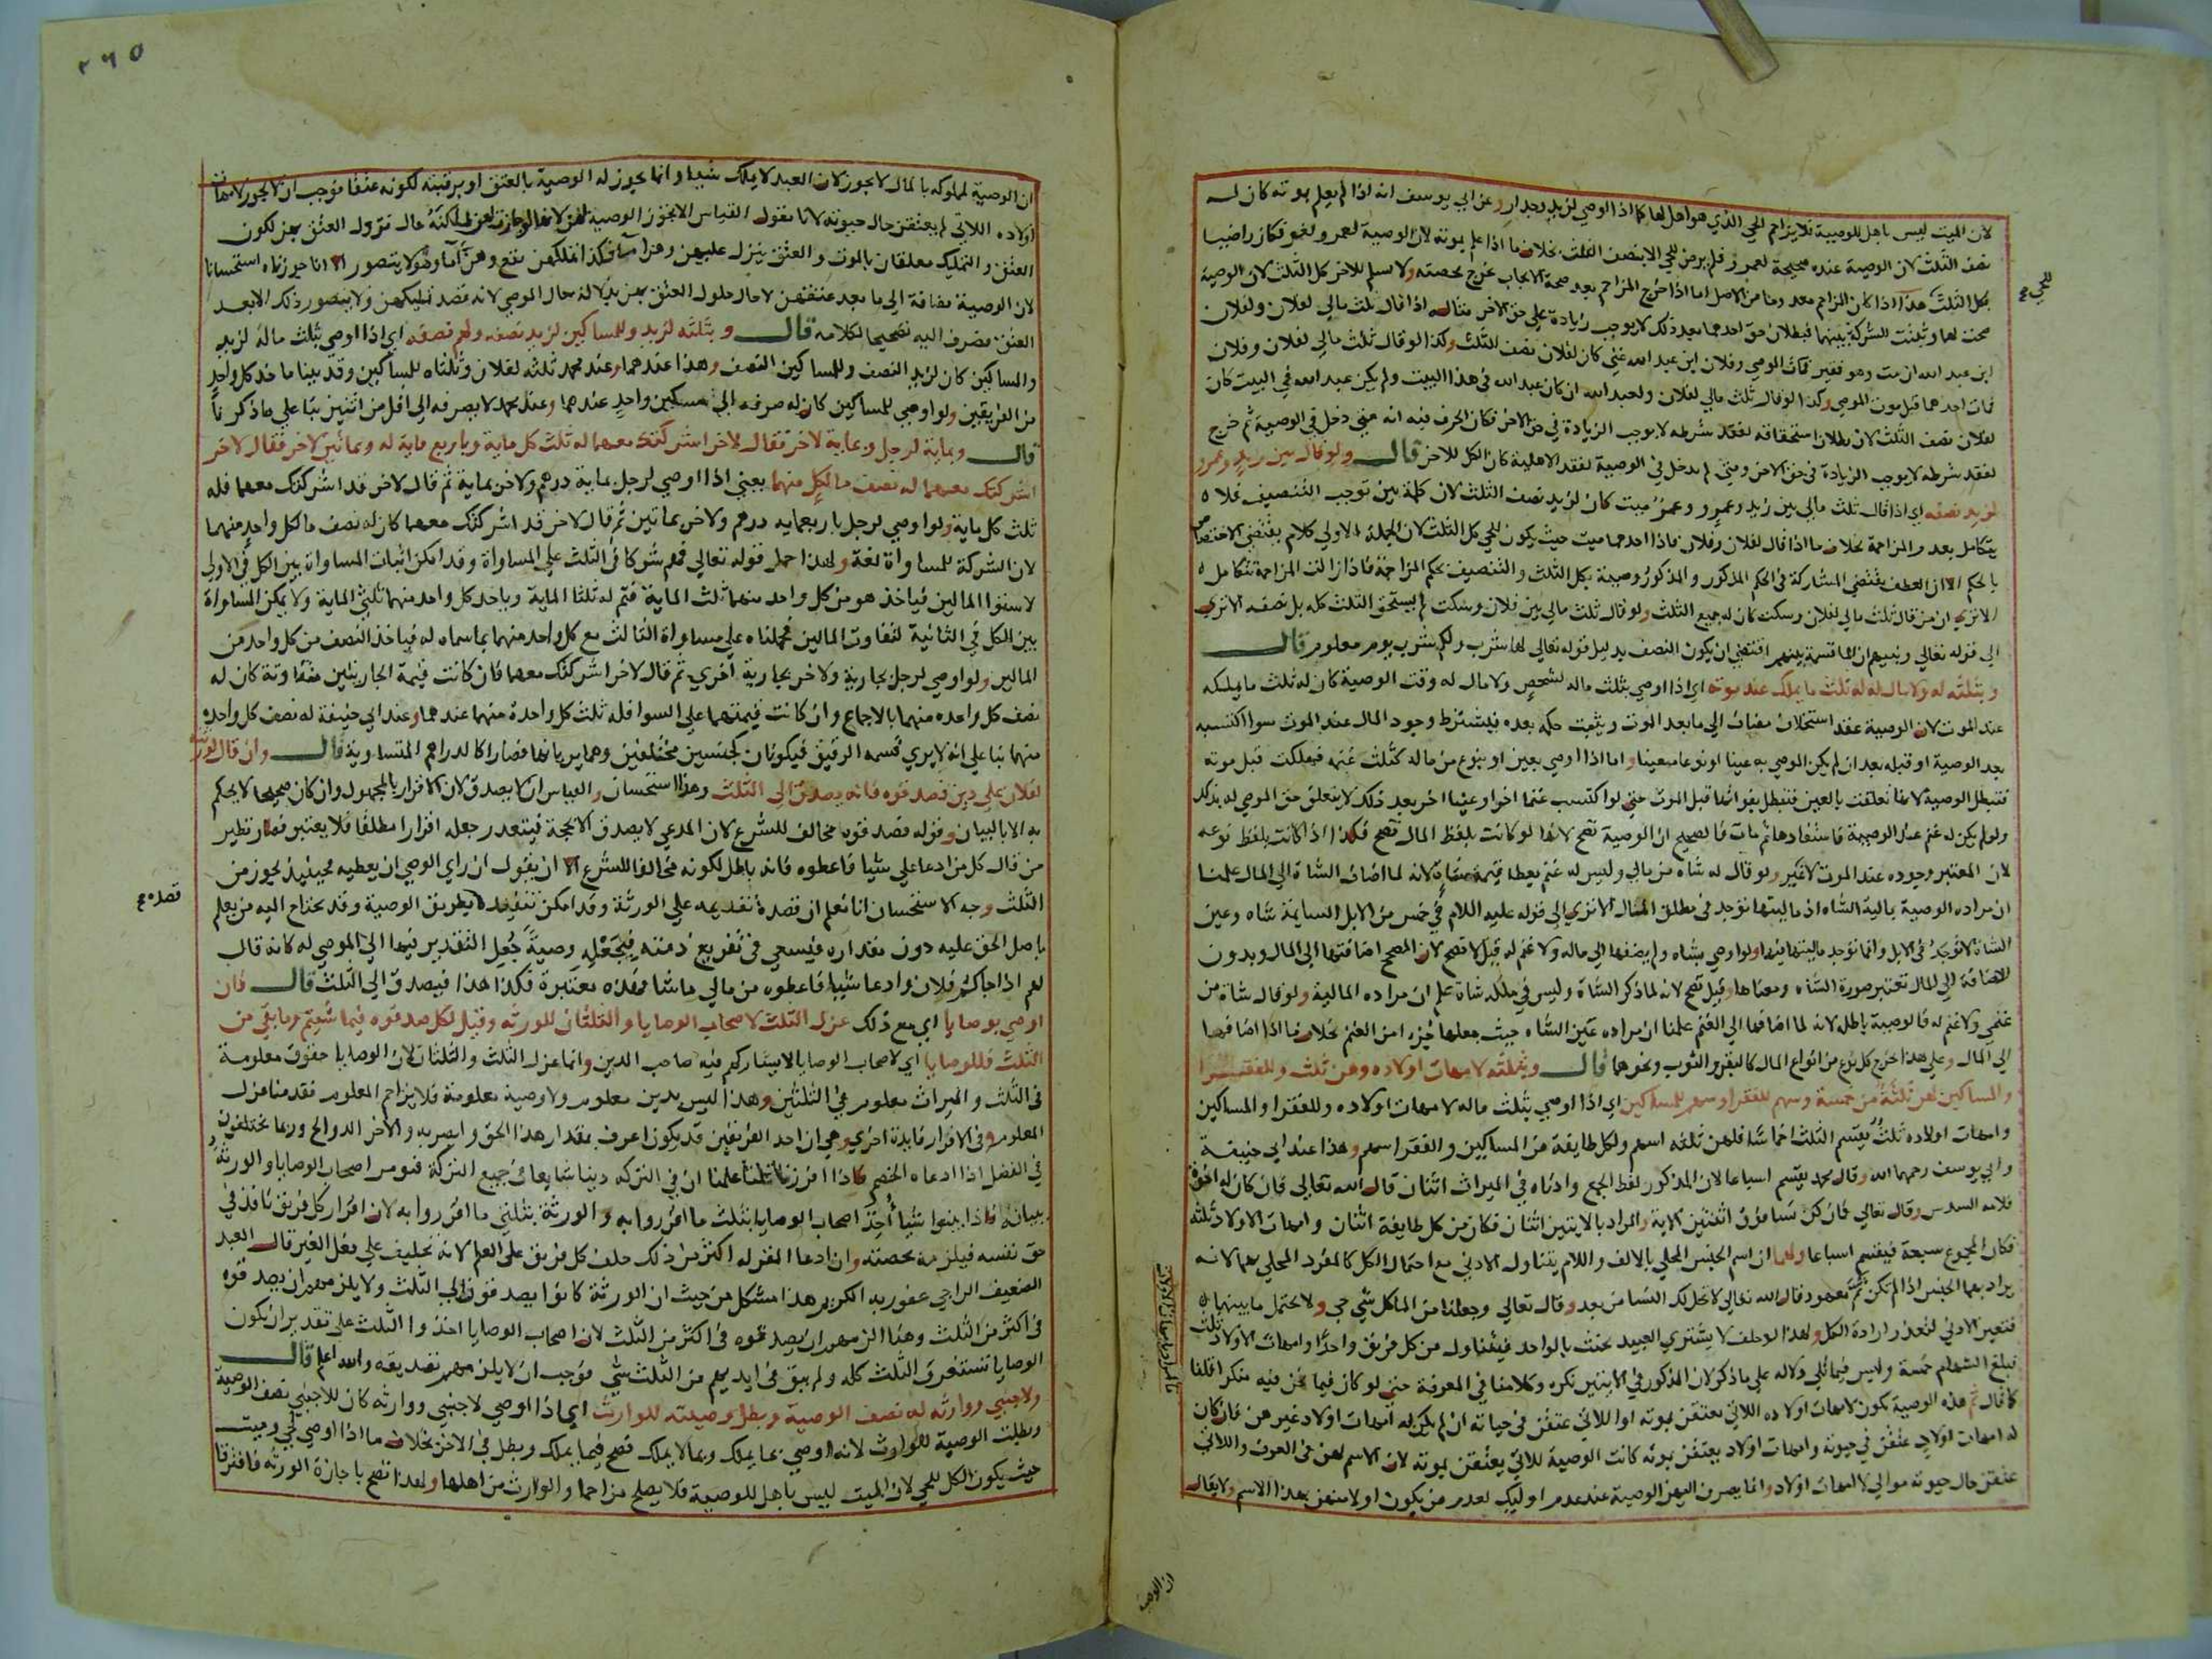 لان الميت ليس باهل للوصية فلا يزاحم الحي الذي هو اهل لها كما اذا اوصي لزيد وجدار وعن ابي يوسف انه اذا لم يعلم بموته كان له
نصف الثلث لان الوصية عنده صحيحة لعمرو فلم يرض للحي الا بنصف الثلث بخلاف ما اذا علم بموته لان الوصية لعمرو لغو فكان راضيا
بكل الثلث هذا اذا كان المزاحم معدوما من الاصل اما اذا خرج المزاحم بعد صحة الايجاب يخرج بحصته ولا يسلم للاخر كل الثلث لان الوصية
صحت لهما وثبتت الشركة بينهما فبطلان حق احدهما بعد ذلك لا يوجب زيادة علي حق الاخر مثاله اذا قال ثلث مالي لفلان ولفلان
ابن عبد الله ان مت وهو فقير فمات الموصي وفلان ابن عبد الله غني كان لفلان نصف الثلث وكذا لو قال ثلث مالي لفلان وفلان
فمات احدهما قبل موت الموصي وكذا لو قال ثلث مالي لفلان ولعبد الله ان كان عبد الله في هذا البيت ولم يكن عبد الله في البيت كان
لفلان نصف الثلث لان بطلان استحقاقه لفقد شرطه لا يوجب الزيادة في حق الاخر فكان الحرف فيه انه متي دخل في الوصية ثم خرج
لفقد شرطه لا يوجب الزيادة في حق الاخر ومتي لم يدخل في الوصية لفقد الاهلية كان الكل للاخر قال ولو قال بين زيد وعمرو
لزيد نصفه اي اذا قال ثلث مالي بين زيد وعمرو وعمرو ميت كان لزيد نصف الثلث لان كلمة بين توجب التنصيف فلا
يتكامل بعدم المزاحمة بخلاف ما اذا قال لفلان وفلان فاذا احدهما ميت حيث يكون للحي كل الثلث لان الجملة الاولي كلام يقتضي الاختصاص
بالحكم الا ان العطف يقتضي المشاركة في الحكم المذكور والمذكور وصية بكل الثلث والتنصيف بحكم المزاحمة فاذا زالت المزاحمة تتكامل
الا تري ان من قال ثلث مالي لفلان وسكت كان له جميع الثلث ولو قال ثلث مالي بين فلان وسكت لم يستحق الثلث كله بل نصفه الا تري
الي قوله تعالي ونبيهم ان الما قسمة بينهم اقتضي ان يكون النصف بدليل قوله تعالي لها شرب ولكم شرب يوم معلوم قال
وبثلثه له ولا مال له له ثلث ما يملك عند موته اي اذا اوصي بثلث ماله لشخص ولا مال له وقت الوصية كان له ثلث ما يملكه
عند الموت لان الوصية عقد استخلاف مضاف الي ما بعد الموت ويثبت حكمه بعده فيشترط وجود المال عند الموت سوا اكتسبه
بعد الوصية او قبله بعد ان لم يكن الموصي به عينا او نوعا معينا واما اذا اوصي بعين او بنوع من ماله كثلث غنمه فهلكت قبل موته
فتبطل الوصية لانها تعلقت بالعين فتبطل بفواتها قبل الموت حتي لو اكتسب غنما اخر او عينا اخر بعد ذلك لا يتعلق حق الموصي له بذلك
ولو لم يكن له غنم عند الوصية فاستفادها ثم مات فالصحيح ان الوصية تصح لانها لو كانت بلفظ المال تصح فكذا اذا كانت بلفظ نوعه
لان المعتبر وجوده عند الموت لا غير ولو قال له شاه من مالي وليس له غنم يعطا قيمة شاة لانه لما اضاف الشاة الي المال علمنا
ان مراده الوصية بمالية الشاه اذ ماليتها توجد في مطلق المال الا تري الي قوله عليه اللام في خمس من الابل السايمة شاه وعين
الشاة لا توجد في الابل وانما توجد ماليتها فيها ولو اوصي بشاه ولم يضفها الي ماله ولا غنم له قيل لا تصح لان المصحح اضافتها الي المال وبدون
الاضافة الي المال تعتبر صورة الشاه ومعناها وقيل تصح لانه لما ذكر الشاة وليس في ملكه شاة علم ان مراده المالية ولو قال شاة من
غنمي ولا غنم له فالوصية باطله لانه لما اضافها الي الغنم علمنا ان مراده عين الشاه حيث جعلها جزءا من الغنم بخلاف ما اذا اضافها
الي المال وعلي هذا خرج كل نوع من انواع المال كالبقر والثوب ونحوهما قال وبثلثه لامهات اولاده وهن ثلث وللفقرا
والمساكين لهن ثلثة من خمسة وسهم للفقرا وسهم للمساكين اي اذا اوصي بثلث ماله لامهات اولاده وللفقرا والمساكين
وامهات اولاده ثلث يقسم الثلث اخماسا فلهن ثلثه اسهم ولكل طايفة من المساكين والفقرا سهم وهذا عند ابي حنيفة
وابي يوسف رحمهما الله وقال محمد يقسم اسباعا لان المذكور لفظ الجمع وادناه في الميراث اثنان قال الله تعالي فان كان له اخوة
فلامه السدس وقال تعالي فان كن نسا فوق اثنتين الاية والمراد بالايتين اثنان فكان من كل طايفة اثنان وامهات الاولاد ثلثه
فكان المجموع سبعة فيقسم اسباعا ولهما ان اسم الجنس المحلي بالالف واللام يتناول الادني مع احتمال الكل كالمفرد المحلي بهما لانه
يراد بهما الجنس اذا لم تكن ثمه معهود قال الله تعالي لا تحل لك النسا من بعد وقال تعالي وجعلنا من الما كل شي حي ولا يحتمل ما بينهما
فتعين الادني لتعذر ارادة الكل ولهذا لو حلف لا يشتري العبيد يحنث بالواحد فيتناول من كل فريق واحدا وامهات الاولاد ثلث
فبلغ السهام خمسة وليس فيما تلي دلاله علي ما ذكر لان المذكور في الايتين نكره وكلامنا في المعرفة حتي لو كان فيما نحن فيه منكرا قلنا
كما قال ثم هذه الوصية تكون لامهات اولاده اللاتي يعتقن بموته او اللاتي عتقن في حياته ان لم يكن له امهات اولاد غيرهن فان كان
له امهات اولاد عتقن في حيوته وامهات اولاد يعتقن بموته كانت الوصية للاتي يعتقن بموته لان الاسم لهن في العرف واللاتي
عتقن حال حيوته موالي لا امهات اولاد وانما يصرف اليهن الوصية عند عدم اوليك لعدم من يكون اولا منهن بهذا الاسم ولا يقال
للحي صح
ان الوصية
٢٦٥
ان الوصية لمملوكه بالمال لا يجوز لان العبد لا يملك شيا وانما يجوز له الوصية بالعتق او برقبته لكونه عتقا فوجب ان لا يجوز لامهات
اولاده اللاتي لم يعتقن حال حيوته لانا نقول القياس الا تجوز الوصية لهن لانها لو جازت لهن لملكنه حال نزول العتق بهن لكون
العتق والتمليك معلقان بالموت والعتق ينزل عليهن وهن اما فكذا تملكهن يقع وهن اما وهو لا يتصور الا انا جوزناه استحسانا
لان الوصية مضافة الي ما بعد عتقهن لا حال حلول العتق بهن بدلالة حال الموصي لانه قصد تمليكهن ولا يتصور ذلك الا بعد
العتق فصرف اليه تصحيحا لكلامه قال وبثلثه لزيد وللمساكين لزيد نصفه ولهم نصفه اي اذا اوصي بثلث ماله لزيد
والمساكين كان لزيد النصف وللمساكين النصف وهذا عندهما وعند محمد ثلثه لفلان وثلثاه للمساكين وقد بينا ماخذ كل واحد
من الفريقين ولو اوصي للمساكين كان له صرفه الي مسكين واحد عندهما وعند محمد لا يصرفه الي اقل من اثنين بنا علي ما ذكرنا
قال وبماية لرجل وبماية لاخر فقال لاخر اشركتك معهما له ثلث كل ماية وباربع ماية له وبمائتين لاخر فقال لاخر
اشركتك معهما له نصف ما لكل منهما يعني اذا اوصي لرجل بماية درهم ولاخر بماية ثم قال لاخر قد اشركتك معهما فله
ثلث كل ماية ولو اوصي لرجل باربعمايه درهم ولاخر بماتين ثم قال لاخر قد اشركتك معهما كان له نصف ما لكل واحد منهما
لان الشركة للمساواة لغة ولهذا حمل قوله تعالي فهم شركا في الثلث علي المساواة وقد امكن اثبات المساواة بين الكل في الاولي
لاستوا المالين فياخذ هو من كل واحد منهما ثلث الماية فتم له ثلثا الماية وياخذ كل واحد منهما ثلثي الماية ولا يمكن المساواة
بين الكل في الثانية لتفاوت المالين فحملناه علي مساواة الثالث مع كل واحد منهما بما سماه له فياخذ النصف من كل واحد من
المالين ولو اوصي لرجل بجارية ولاخر بجارية اخري ثم قال لاخر اشركتك معهما فان كانت قيمة الجاريتين متفاوتة كان له
نصف كل واحده منهما بالاجماع وان كانت قيمتهما علي السوا فله ثلث كل واحدة منهما عندهما وعند ابي حنيفة له نصف كل واحدة
منهما بنا علي انه لا يري قسمه الرقيق فيكونان كجنسين مختلفين وهما يريانها فصارا كالدراهم المتساوية قال وان قال لورثته
لفلان علي دين فصدقوه فانه يصدق الي الثلث وهذا استحسان والقياس ان لا يصدق لان الاقرار بالمجهول وان كان صحيحا لا يحكم
به الا بالبيان وقوله فصدقوه مخالف للشرع لان المدعي لا يصدق الا بحجة فيتعذر جعله اقرارا مطلقا فلا يعتبر فصار نظير
من قال كل من ادعا علي شيا فاعطوه فانه باطل لكونه مخالفا للشرع الا ان يقول ان راي الوصي ان يعطيه فحينيذ يجوز من
الثلث وجه الاستحسان انا نعلم ان قصده تقديمه علي الورثة وقد امكن تنفيذ بطريق الوصية وقد يحتاج اليه من يعلم
باصل الحق عليه دون مقداره فيسعي في تفريغ ذمته فيجعله وصية جعل التقدير فيها الي الموصي له كانه قال
لهم اذا جاكم فلان وادعا شيا فاعطوه من مالي ما شا فهذه معتبرة فكذا هذا فيصدق الي الثلث قال فان
اوصي بوصايا اي مع ذلك عزل الثلث لاصحاب الوصايا والثلثان للورثه وقيل لكل صدقوه فيما شيتم وما بقي من
الثلث فللوصايا اي لاصحاب الوصايا لا يشاركهم فيه صاحب الدين وانما عزل الثلث والثلثان لان الوصايا حقوق معلومة
في الثلث والميراث معلوم في الثلثين وهذا ليس بدين معلوم ولا وصية معلومة فلا يزاحم المعلوم فقدمنا عزل
المعلوم وفي الافراز فايدة اخري وهي ان احد الفريقين قد يكون اعرف بمقدار هذا الحق وابصر به والاخر الد والح وربما يختلفون
في الفضل اذا ادعاه الخصم فاذا افرزنا ثلثا علمنا ان في التركه دينا شايعا في جميع التركة فنومر اصحاب الوصايا والورثة
ببيانه فاذا بينوا شيا اخذ اصحاب الوصايا بثلث ما اقروا به والورثة بثلثي ما اقروا به لان اقرار كل فريق نافذ في
حق نفسه فيلزمه بحصته وان ادعا المقر له اكثر من ذلك حلف كل فريق علي العلم لانه تحليف علي فعل الغير قال العبد
الضعيف الراجي عفو ربه الكريم هذا مشكل من حيث ان الورثة كانوا يصدقون الي الثلث ولا يلزمهم ان يصدقوه
في اكثر من الثلث وهنا الزمهم ان يصدقوه في اكثر من الثلث لان اصحاب الوصايا اخذوا الثلث علي تقدير ان يكون
الوصايا تستغرق الثلث كله ولم يبق في ايديهم من الثلث شي فوجب ان لا يلزمهم تصديقه والله اعلم قال
ولاجنبي ووارثه له نصف الوصية وبطل وصيته للوارث اي اذا اوصي لاجنبي ووارثه كان للاجنبي نصف الوصية
وبطلت الوصية للوارث لانه اوصي بما يملك وبما لا يملك فصح فيما يملك وبطل في الاخر بخلاف ما اذا اوصي لحي وميت
حيث يكون الكل للحي لان الميت ليس باهل للوصية فلا يصلح مزاحما والوارث من اهلها ولهذا تصح باجازة الورثه فافترقا